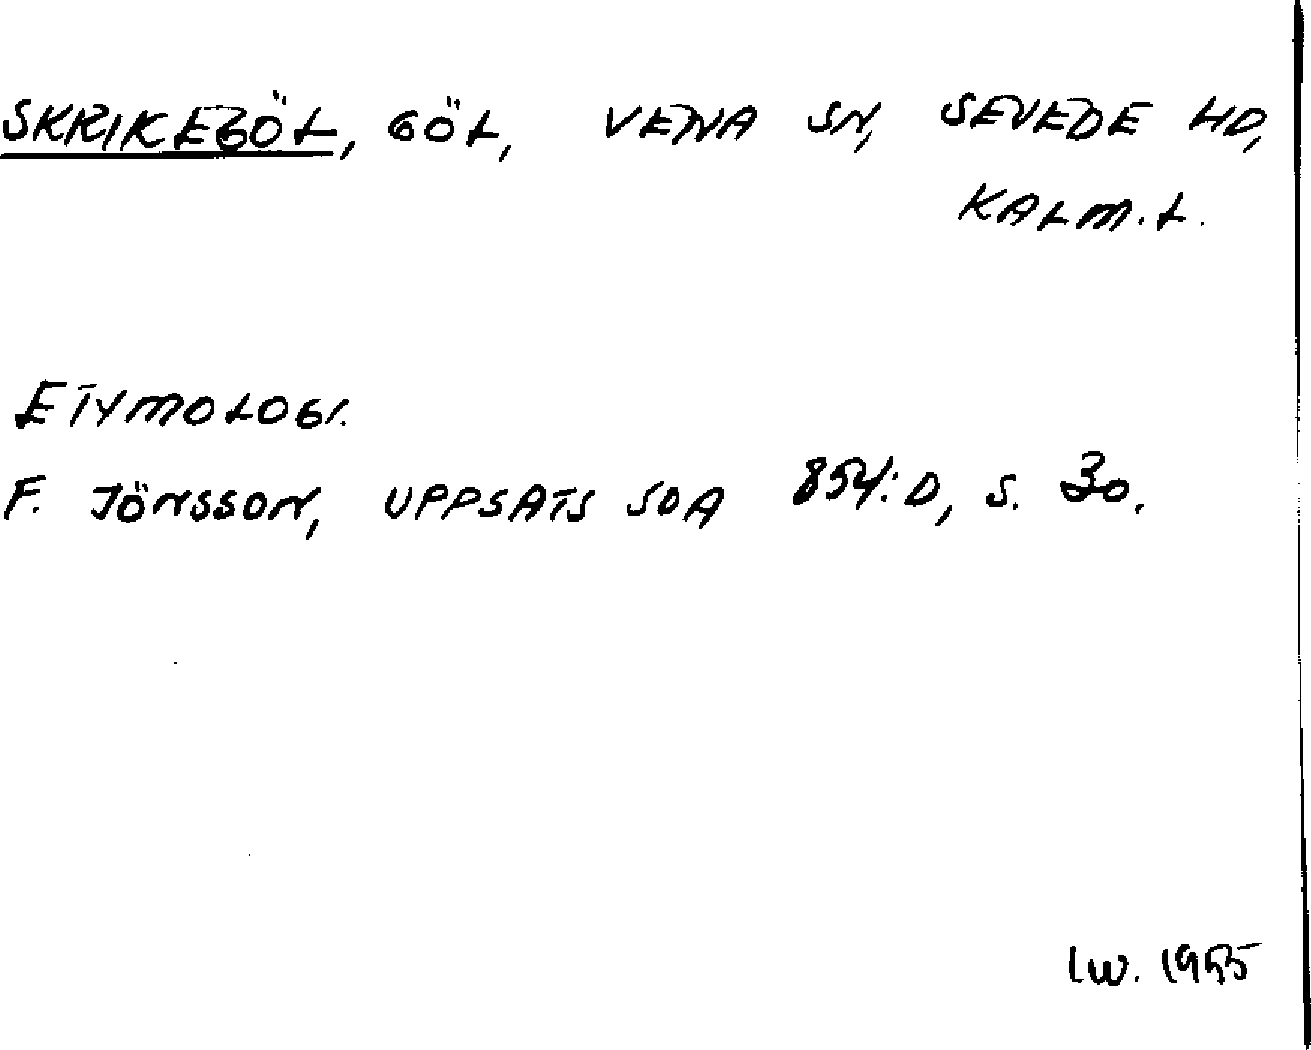 SKRIKEGÖL, GÖL, VENA SN, SEVEDE HD,
KALM.L.
ETYMOLOGI.
F. JÖNSSON, UPPSATS SOA 854:D, S. 30.
IW. 1955